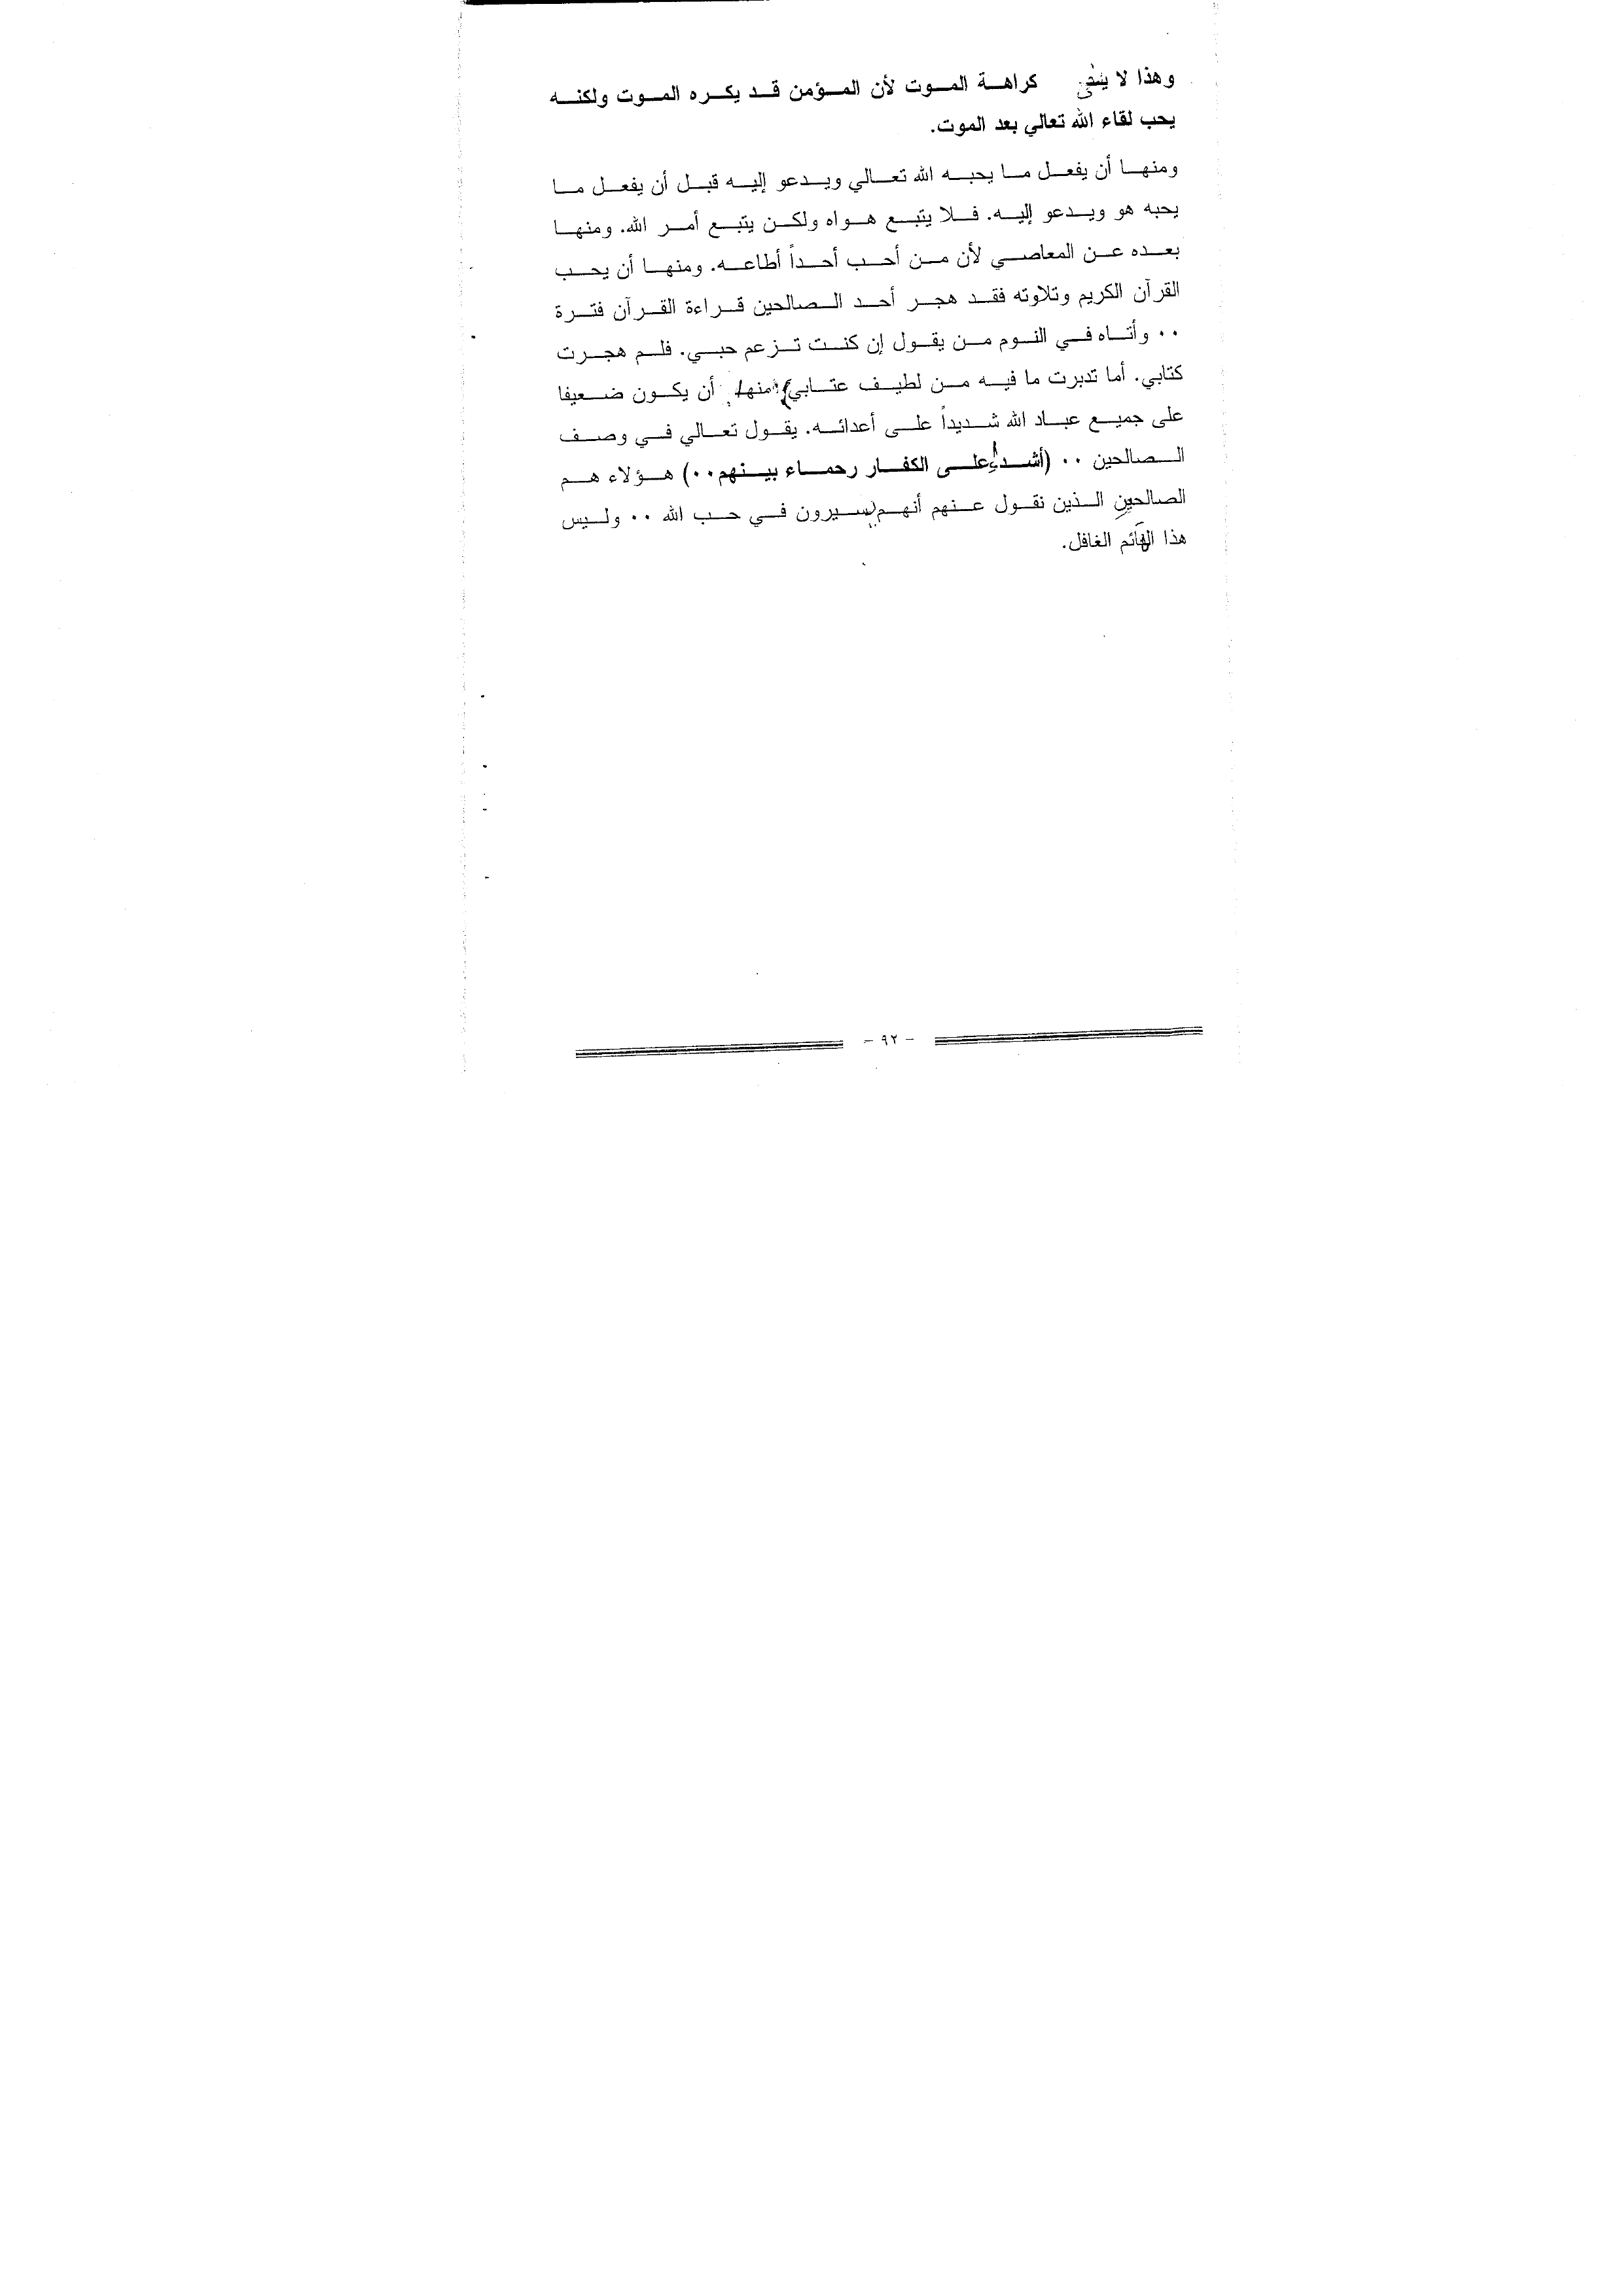 وهذا لا ينفي كراهة الموت لأن المؤمن قد يكره الموت ولكنه
يحب لقاء الله تعالي بعد الموت.
ومنها أن يفعل ما يحبه الله تعالي ويدعو إليه قبل أن يفعل ما
يحبه هو ويدعو إليه. فلا يتبع هواه ولكن يتبع أمر الله. ومنها
بعده عن المعاصي لأن من أحب أحداً أطاعه. ومنها أن يحب
القرآن الكريم وتلاوته فقد هجر أحد الصالحين قراءة القرآن فترة
.. وأتاه في النوم من يقول إن كنت تزعم حبي. فلم هجرت
كتابي. أما تدبرت ما فيه من لطيف عتابي ومنها أن يكون ضعيفا
على جميع عباد الله شديداً على أعدائه. يقول تعالي في وصف
الصالحين .. (أشداء على الكفار رحماء بينهم..) هؤلاء هم
الصالحين الذين نقول عنهم أنهم يسيرون في حب الله .. وليس
هذا الهائم الغافل.
- ٩٢ -